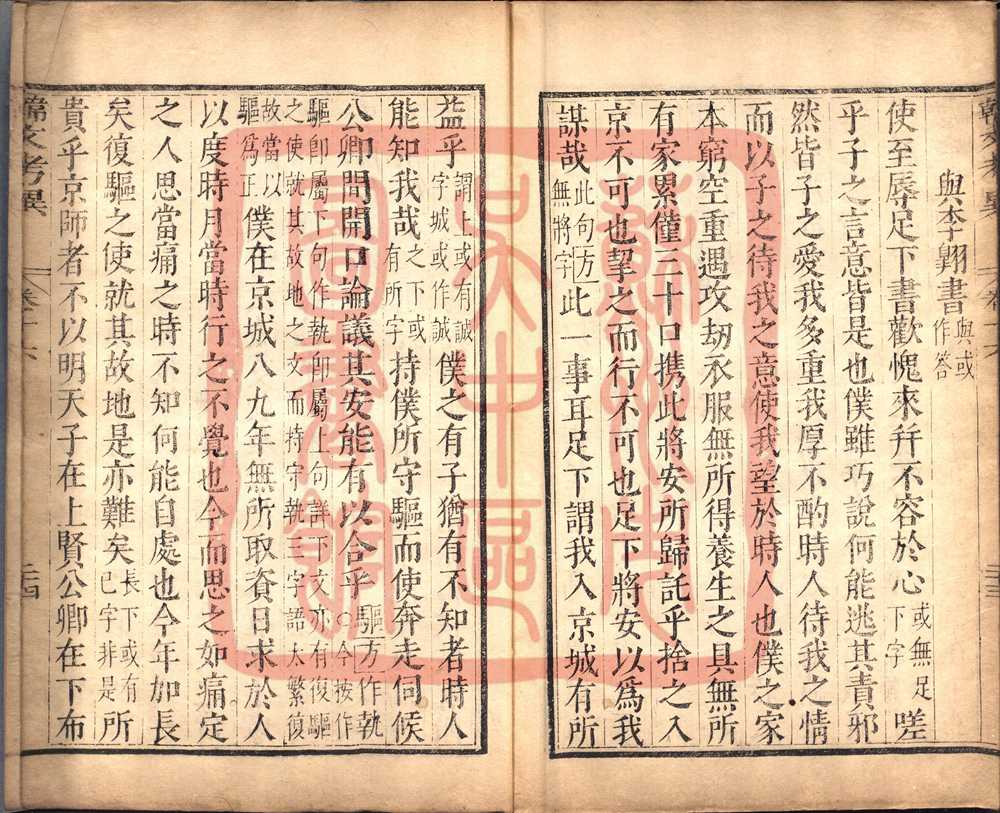 與李翺書與或作答
使至辱足下書歡愧來幷不容於心或無足下字嗟
乎子之言意皆是也僕雖巧說何能逃其責邪
然皆子之愛我多重我厚不酌時人待我之情
而以子之待我之意使我望於時人也僕之家
本窮空重遇攻劫衣服無所得養生之具無所
有家累僅三十口携此將安所歸託乎捨之入
京不可也挈之而行不可也足下將安以爲我
謀哉此句方無將字此一事耳足下謂我入京城有所
益乎謂上或有誠字城或作誠僕之有子猶有不知者時人
能知我哉之下或有所字持僕所守驅而使奔走伺候
公卿間開口論議其安能有以合乎驅方作執○今按作
驅卽屬下句作執卽屬上句詳下文亦有復驅
之使就其故地之文而持守執三字語太繁復
故當以驅爲正僕在京城八九年無所取資日求於人
以度時月當時行之不覺也今而思之如痛定
之人思當痛之時不知何能自處也今年加長
矣復驅之使就其故地是亦難矣長下或有已字非是所
貴乎京師者不以明天子在上賢公卿在下布
韓文考異
卷十六
三四